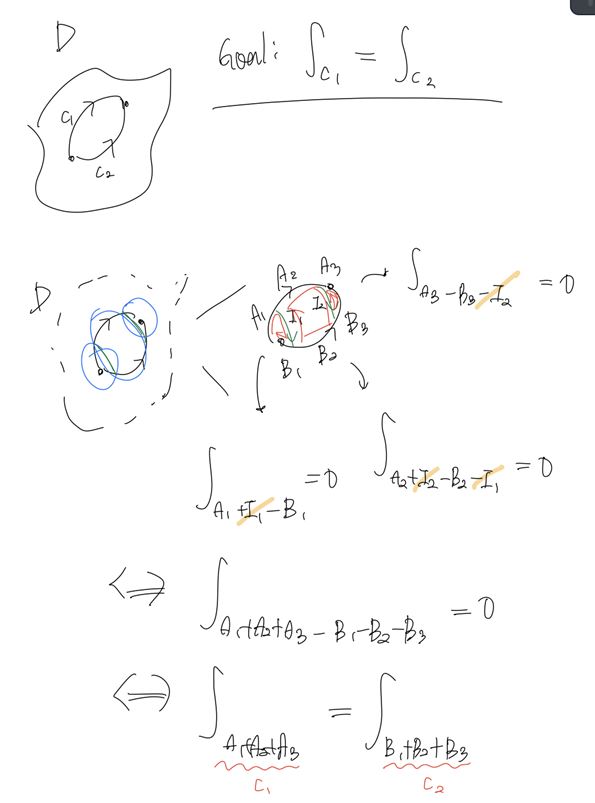 D
Goal: ∫_{C₁} = ∫_{C₂}
C₁
C₂
D
A₁ A₂ A₃
I₁ I₂
B₁ B₂ B₃
∫_{A₃ - B₃ - I₂} = 0
∫_{A₁ + I₁ - B₁} = 0
∫_{A₂ + I₂ - B₂ - I₁} = 0
⟺ ∫_{A₁+A₂+A₃ - B₁-B₂-B₃} = 0
⟺ ∫_{A₁+A₂+A₃} = ∫_{B₁+B₂+B₃}
C₁ C₂